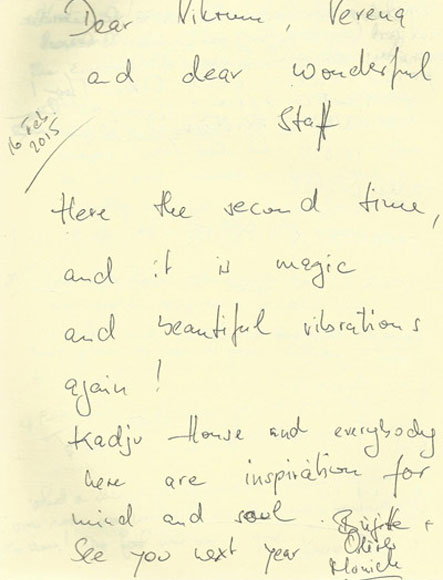 Dear Vikrum, Verena
and dear wonderful
Staff
16 Feb.
2015
Here the second time,
and it is magic
and beautiful vibrations
again!
Kadju House and everybody
here are inspiration for
mind and soul
See you next year
Brigitte +